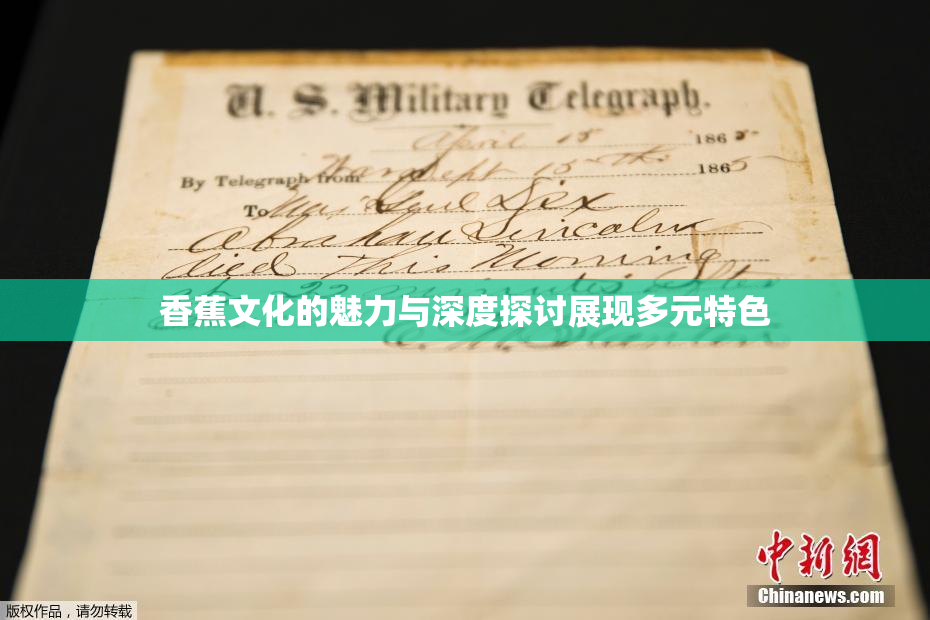 U. S. Military Telegraph.
April 15 1865
By Telegraph from War Dept 15th 1865
To Maj Genl Dix
Abraham Lincoln
died This Morning
at 22 minutes after
香蕉文化的魅力与深度探讨展现多元特色
E. M. Stanton
中新網
Chinanews.com
版权作品，请勿转载